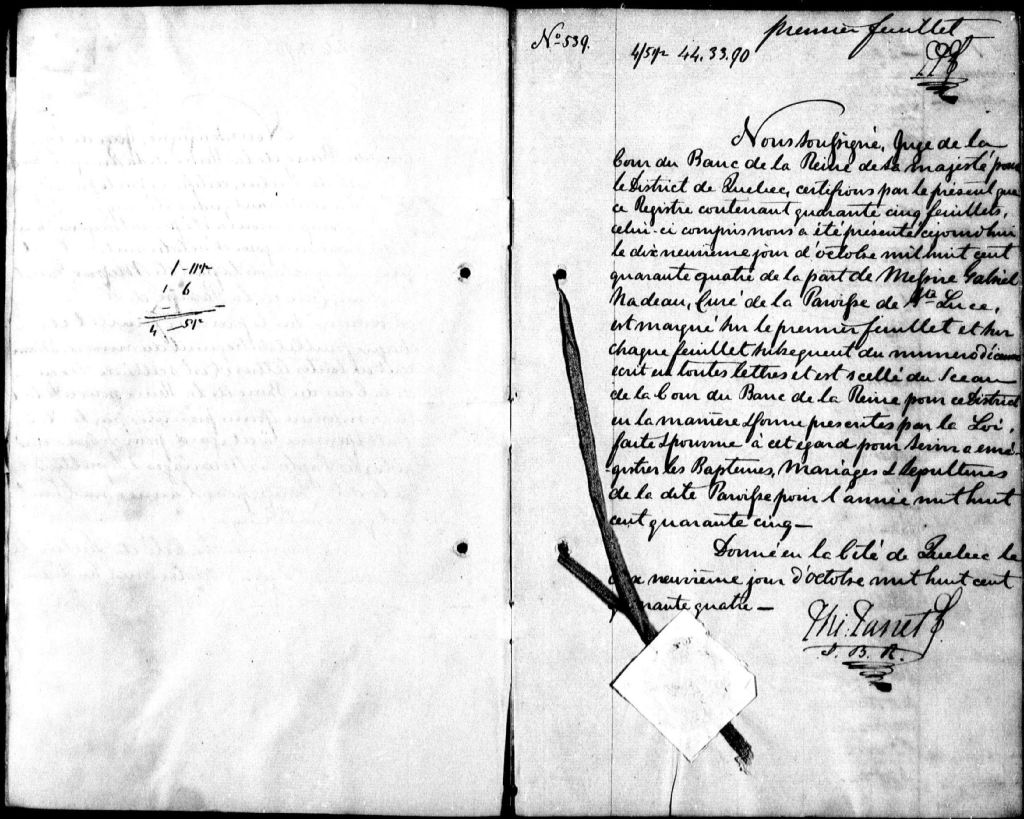 1 - 11
1 - 6
4
No 539.
44.33.90
premier feuillet
Nous soussigné, Juge de la
Cour du Banc de la Reine de Sa majesté pour
le District de Quebec, certifions par le présent que
ce Registre contenant quarante cinq feuillets,
celui-ci compris nous a été présenté ce jourd'hui
le dix neuvième jour d'octobre mil huit cent
quarante quatre de la part de Messire Gabriel
Nadeau, Curé de la Paroisse de Ste Luce,
est marqué sur le premier feuillet et sur
chaque feuillet subsequent du numero
écrit en toutes lettres et est scellé du Sceau
de la Cour du Banc de la Reine pour ce District
en la manière & forme presentes par la Loi,
faite & pourvue à cet egard pour servir a enré-
gistrer les Baptemes, Mariages & Sepultures
de la dite Paroisse pour l'année mil huit
cent quarante cinq —
Donné en la Cité de Quebec le
dix neuvième jour d'octobre mil huit cent
quarante quatre —
J. B. R.